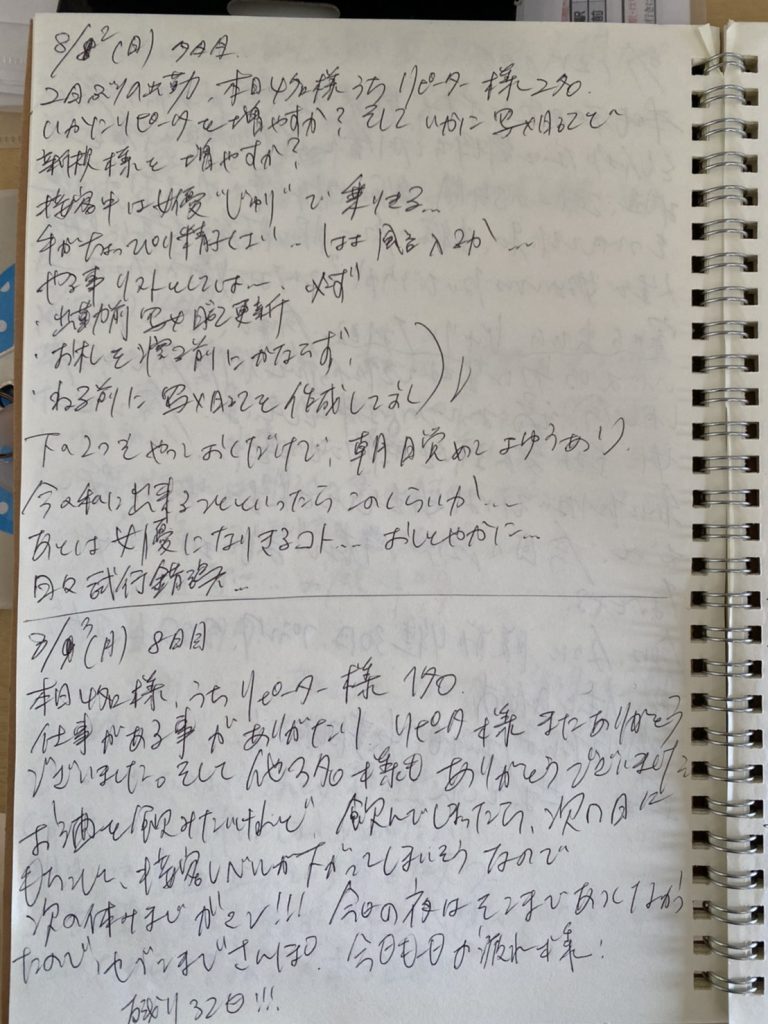 8/2(日) 7日目.
2日ぶりの出勤、本日4名様うちリピーター様2名.
いかにリピータを増やすか? そしていかに写メ日記で
新規様を増やすか?
接客中は女優"じゅり"で乗りきる…
手がちょっぴり精子くさい… はよ風呂入るか…
やる事リストとしては… 必ず
・出勤前写メ日記更新
・お札を 前にかならず、
・ねる前に写メ日記を作成しておく
下の2つをやっておくだけで、朝目覚めてよゆうあり.
今の私に出来ることといったらこのくらいか….
あとは女優になりきるコト… おしとやかに…
日々試行錯誤…
8/3(月) 8日目
本日4名様、うちリピーター様1名.
仕事がある事がありがたい. リピータ様またありがとう
ございました。そして他3名様もありがとうございました
お酒を飲みたいけれど、飲んでしまったら、次の日に
もちこして、接客レベルが下がってしまいそうなので
次の休みまでガマン!!! 今日の夜はそこまであつくなかっ
たので、セブンまでさんぽ. 今日も一日お疲れ様!
残り32日!!!